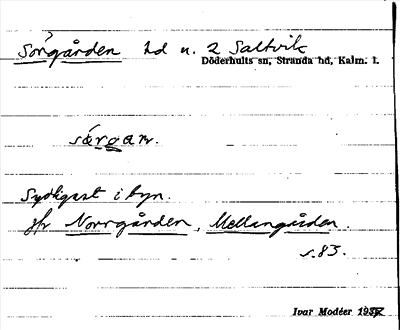 Sörgården hd n. 2 Saltvik
Döderhults sn, Stranda hd, Kalm. l.
Sydligast i byn.
jfr Norrgården, Mellangården.
s. 83.
Ivar Modéer